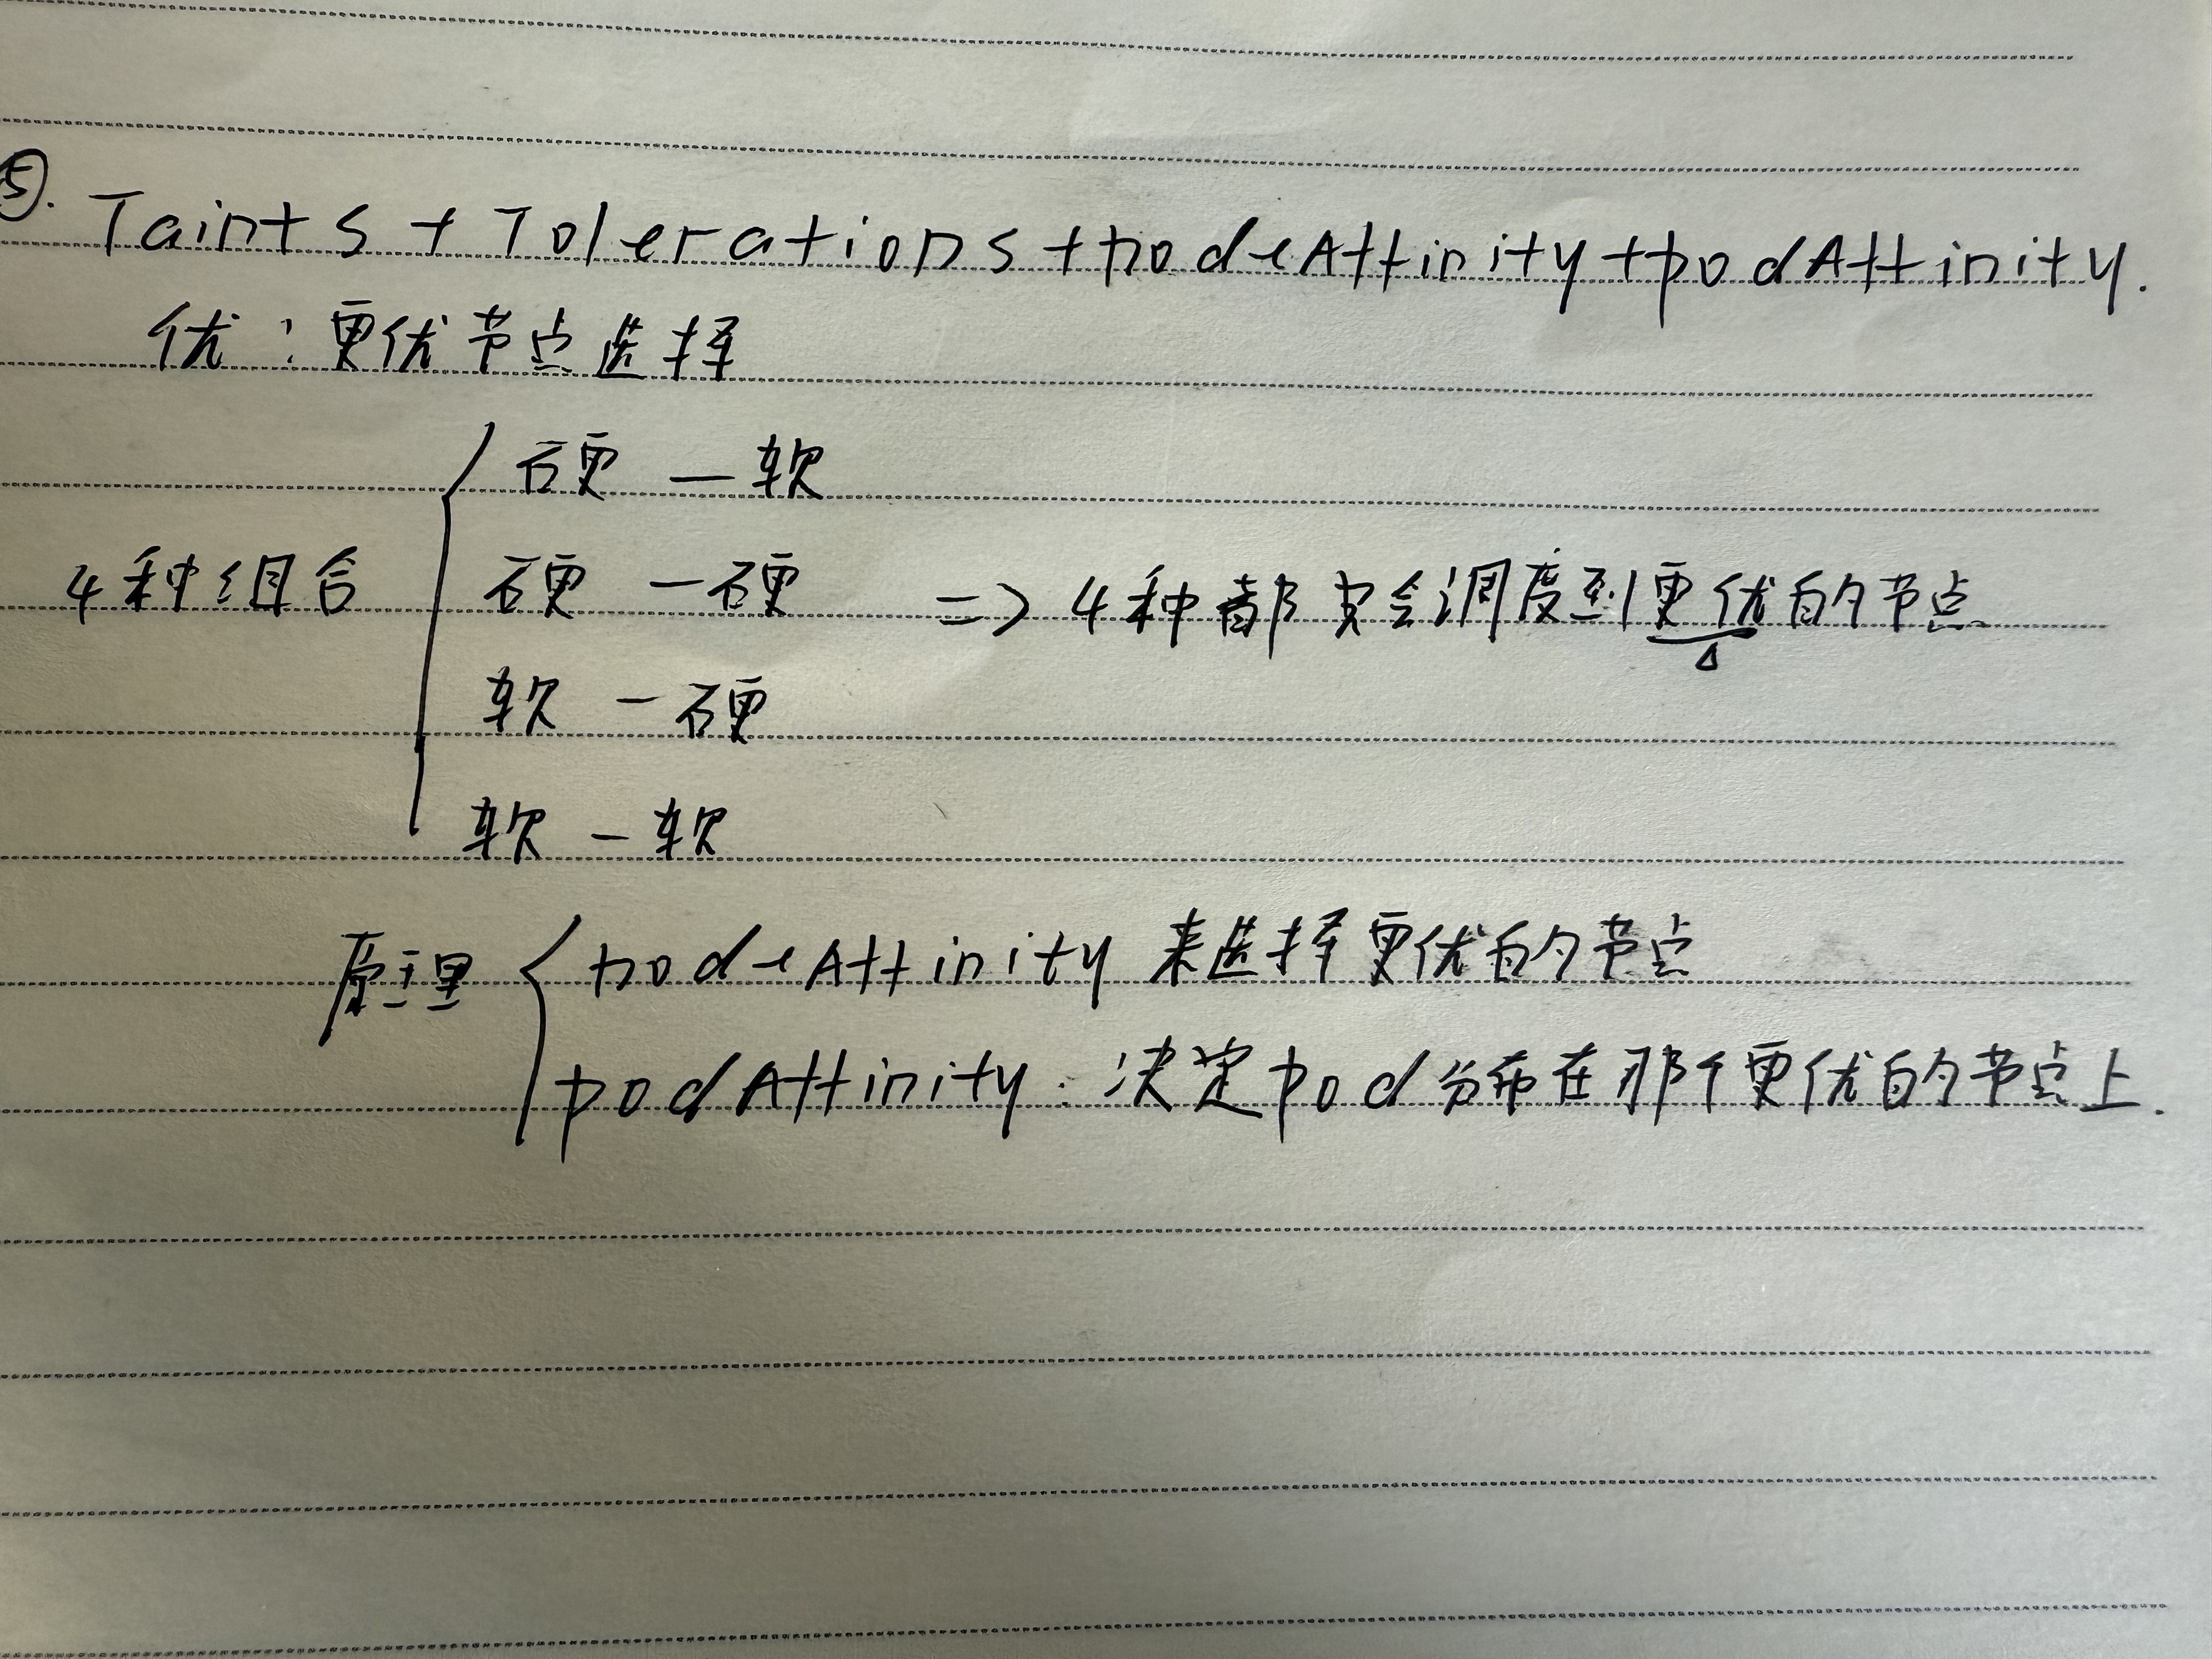 ⑤. Taints + Tolerations + nodeAffinity + podAffinity.
优：更优节点选择
硬 — 软
4种组合 硬 — 硬 => 4种都会调度到更优的节点
软 — 硬
软 — 软
原理 nodeAffinity 来选择更优的节点
podAffinity：决定pod分布在那个更优的节点上.